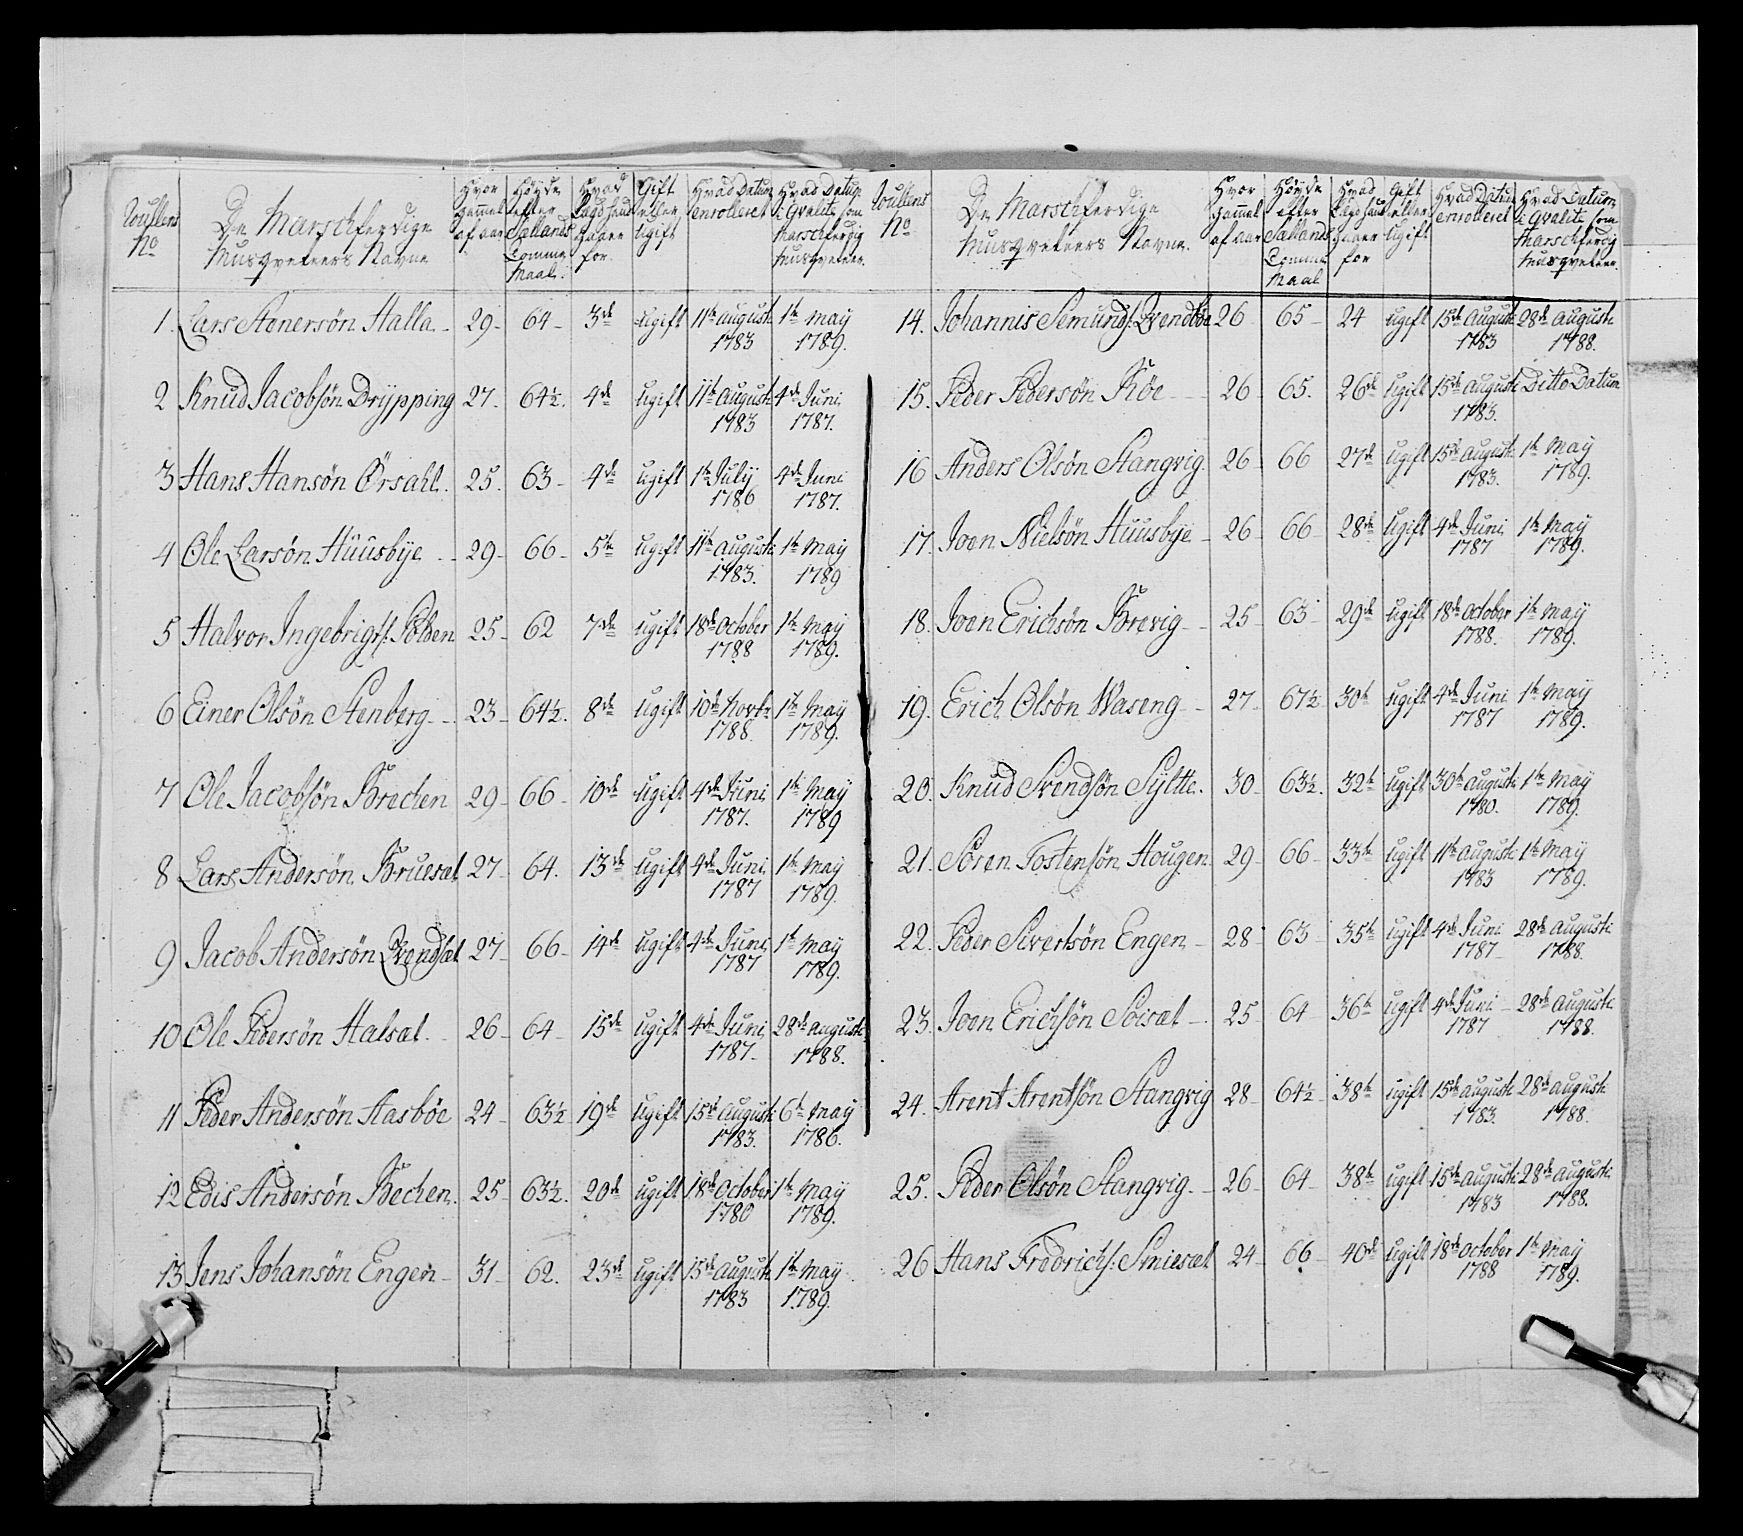 Roullens No | De Marschferdige Musqveteers Navne | Hvor Gammel af aar | Höyde efter Sællands Comme Maal. | Hvad Lægd hand staaer for | Gift eller ugift | Hvad Datum enrolleret | Hvad Datum i Qvalite som Marschferdig Musqveteer.
1. Lars Stenersön Halla 29 64 3de ugift 11te Augusti 1783 1te May 1789.
2 Knud Jacobsön Drÿpping 27. 64½. 4de ugift 11te Augusti 1783 4de Juni 1787.
3 Hans Hansön Örsahl. 25. 63 4de ugift 1te July 1786 4de Juni 1787.
4 Ole Larsön Huusbÿe 29 66 5te ugift 11te Augusti 1783. 1te May 1789
5 Halvor Ingebrigts: Polden 25 62 7de ugift 18de October 1788 1te May 1789.
6 Einer Olsön Stenberg 23 64½. 8de ugift 10de Novbr 1788. 1te May 1789.
7 Ole Jacobsön Brechen 29 66 10de ugift 4de Juni 1787. 1te May 1789
8 Lars Andersön Bruesæt 27 64. 13de ugift 4de Juni 1787 1te May 1789.
9 Jacob Andersön Qvendsæt 27 66 14de ugift 4de Juni 1787 1te May 1789.
10 Ole Pedersön Halsæt 26 64 15de ugift 4de Juni 1787. 28de Augusti 1788.
11 Peder Andersön Aasböe 24 63½ 19de ugift 15de Augusti 1783. 6te May 1786.
12 Edis Andersön Bechen. 25 63½. 20de ugift 18de October 1780 1te May 1789.
13 Jens Johansön Engen 31 62. 23de ugift 15de Augusti 1783 1te May 1789.
Roullens No | De Marschferdige Musqveteers Navne. | Hvor Gammel af aar | Höyde efter Sællands Comme Maal | Hvad Lægd hand staaer for | Gift eller ugift | Hvad Datum enrolleret | Hvad Datum i Qvalite som Marschferdig Musqveteer.
14. Johannis Semunds: Qvendböe 26 65 24 ugift 15de Augusti 1783 28de Augusti 1788.
15. Peder Pedersön Röe 26 65. 26de ugift 15de Augusti 1783. Ditto Datum
16 Anders Olsön Stangvig 26 66 27de ugift 15de Augusti 1783. 1te May 1789.
17. Joen Nielsön Huusbye 26 66 28de ugift 4de Juni 1787 1te May 1789.
18. Joen Erichsön Brevig 25 63 29de ugift 18de October 1788. 1te May 1789.
19. Erich Olsön Waseng 27 67½ 30te ugift 4de Juni 1787 1te May 1789.
20. Knud Svendsön Sÿlte. 30 63½. 32te ugift 30te Augusti 1780. 1te May 1789.
21. Sören Tostensön Hougen 29 66 33te ugift 11te Augusti 1783 1te May 1789.
22. Peder Sivertsön Engen 28 63 35te ugift 4de Juni 1787 28de Augusti 1788.
23. Joen Erichsön Soisæt 25 64 36te ugift 4de Juni 1787 28de Augusti 1788.
24. Arent Arentsön Stangvig 28 64½ 38te ugift 15de Augusti 1783. 28de Augusti 1788.
25. Peder Olsön Stangvig 26 64 38te ugift 15de Augusti 1783 28de Augusti 1788.
26 Hans Fredrichs: Smiesæt 24 66 40de ugift 18de October 1788 1te May 1789.